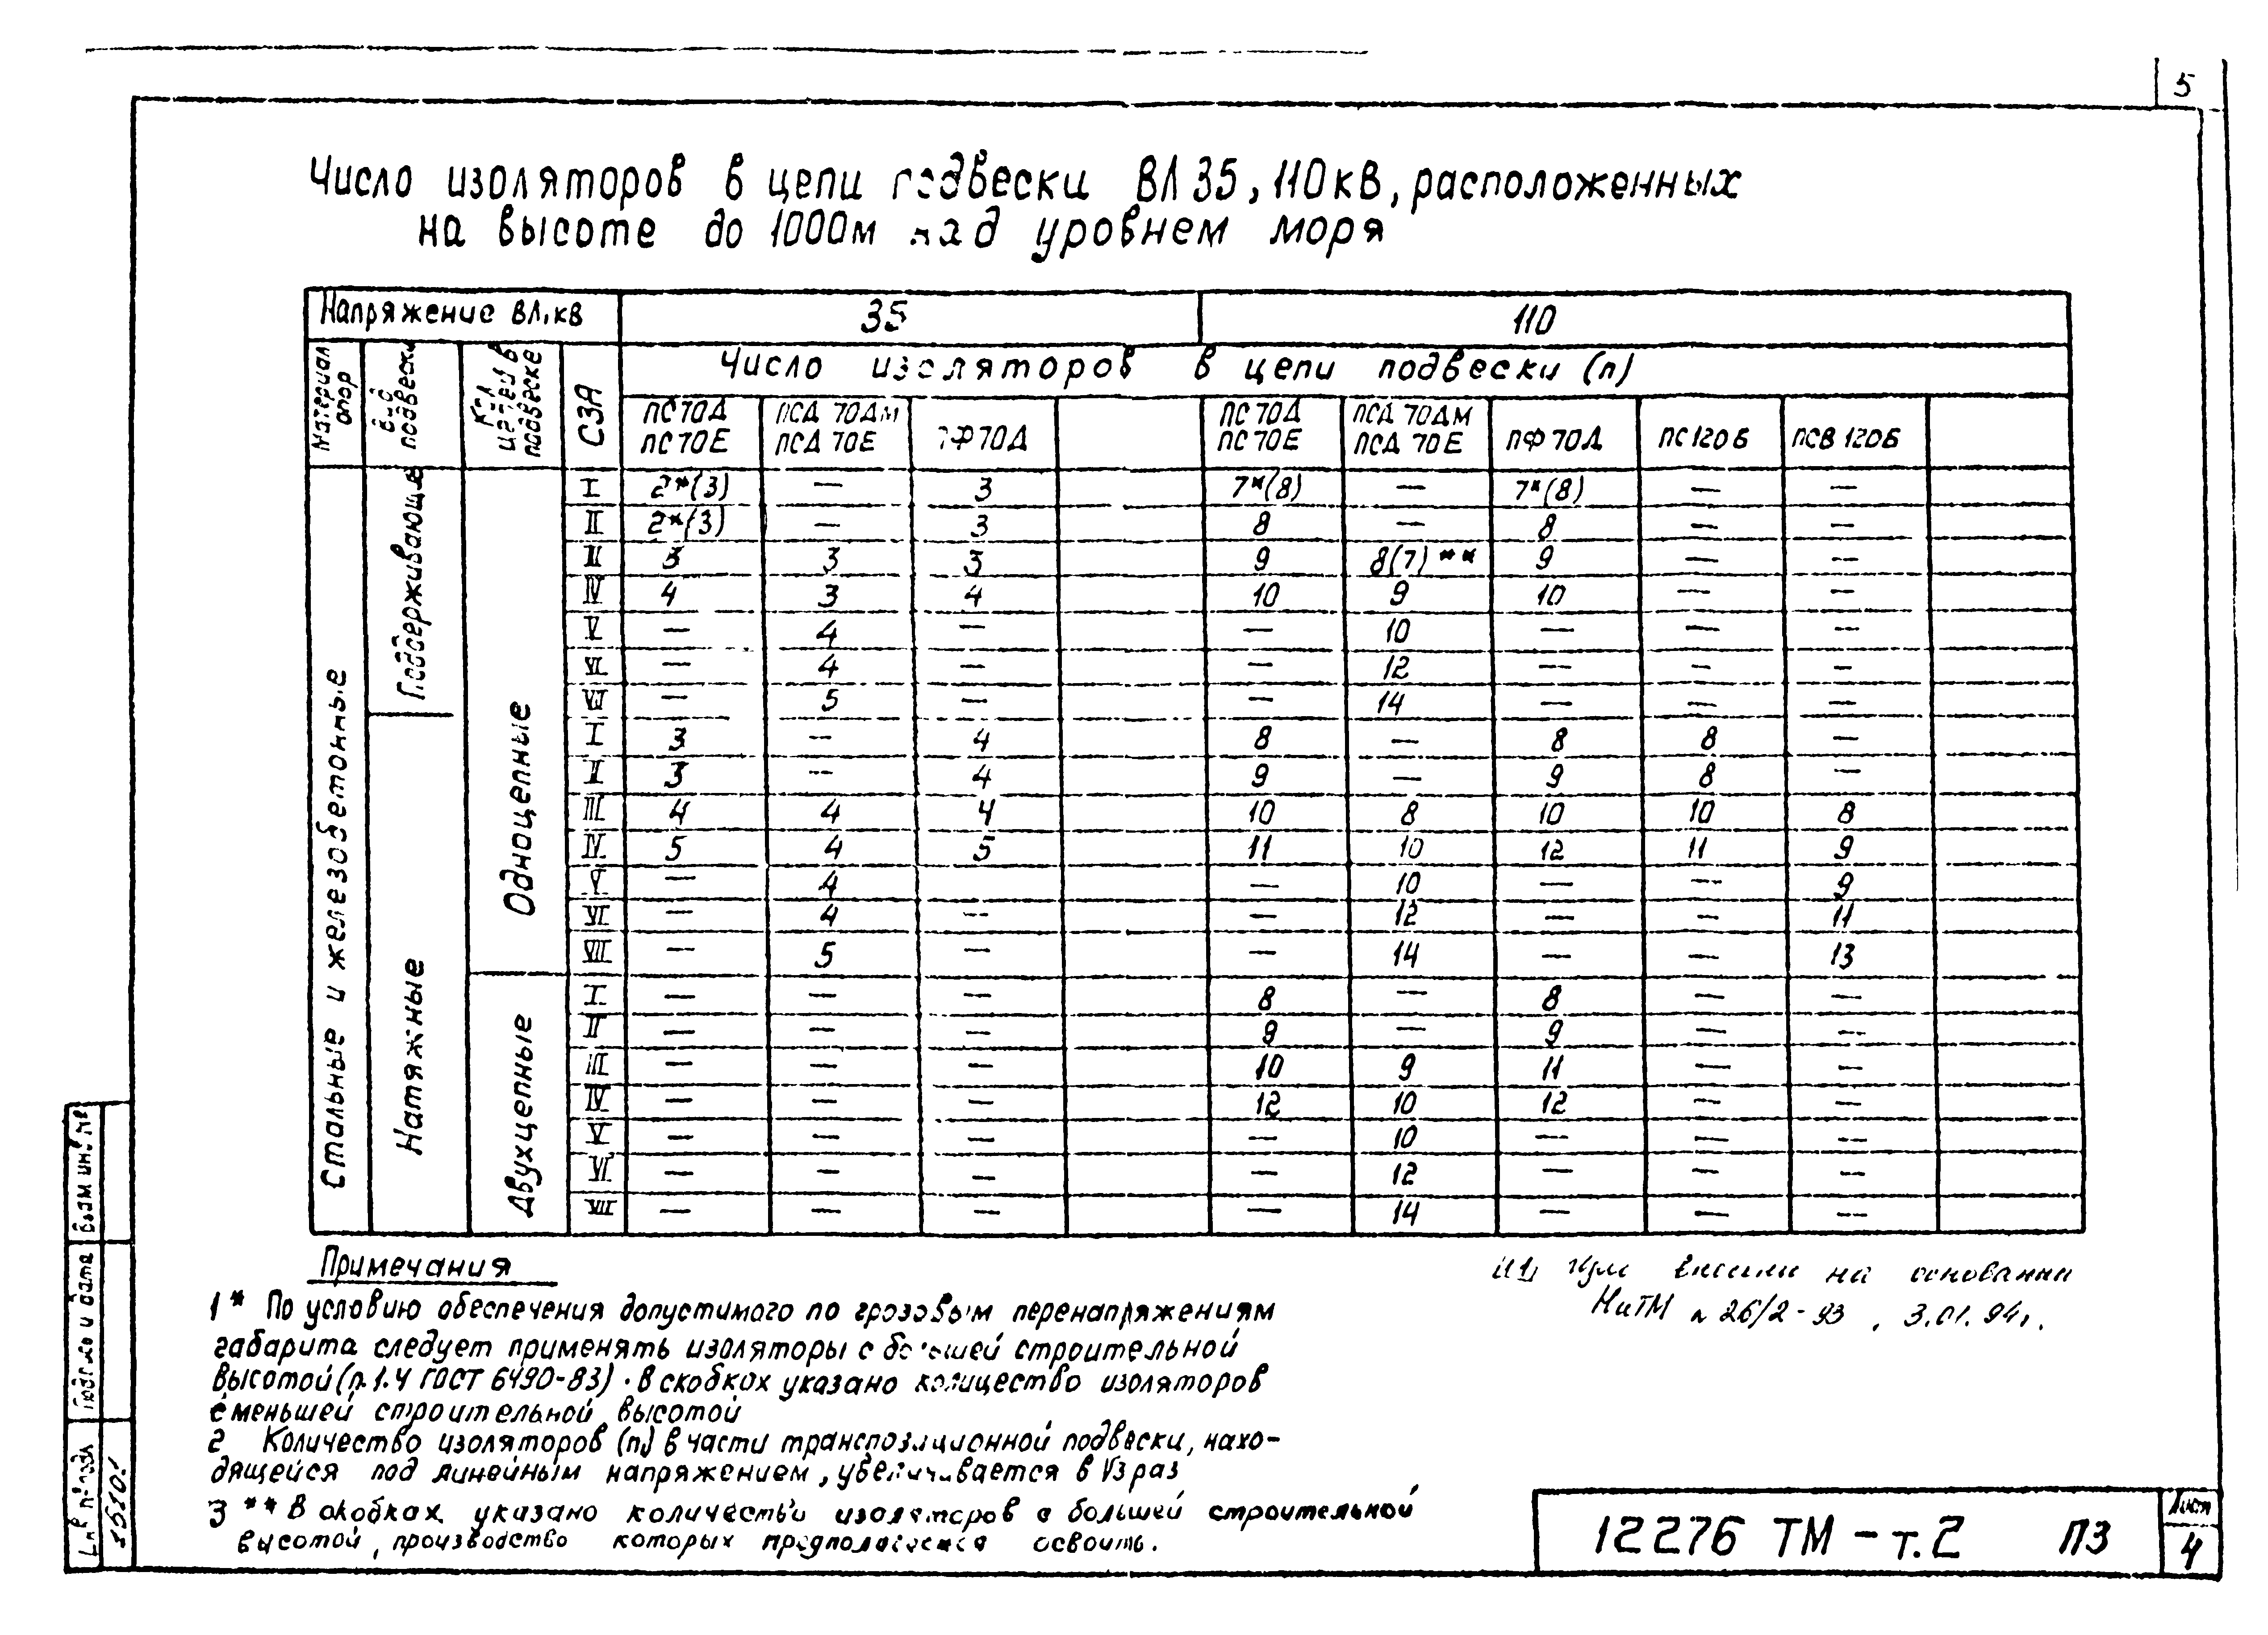 5
Число изоляторов в цепи подвески ВЛ 35, 110 кВ, расположенных
на высоте до 1000м над уровнем моря
Напряжение ВЛ, кВ 35 110
Материал опор Вид подвески Кол. цепей в подвеске СЗА Число изоляторов в цепи подвески (n)
ПС 70Д ПСД 70ДМ ПС 70Д ПСД 70ДМ
ПС 70Е ПСД 70Е ПФ 70Д ПС 70Е ПСД 70Е ПФ 70Д ПС 120Б ПСВ 120Б
Стальные и железобетонные
Поддерживающие
Одноцепные
I 2*(3) — 3 7*(8) — 7*(8) — —
II 2*(3) — 3 8 — 8 — —
III 3 3 3 9 8(7)** 9 — —
IV 4 3 4 10 9 10 — —
V — 4 — — 10 — — —
VI — 4 — — 12 — — —
VII — 5 — — 14 — — —
Натяжные
I 3 — 4 8 — 8 8 —
II 3 — 4 9 — 9 8 —
III 4 4 4 10 8 10 10 8
IV 5 4 5 11 10 12 11 9
V — 4 — 10 — — 9
VI — 4 — — 12 — — 11
VII — 5 — — 14 — — 13
Двухцепные
I — — — 8 — 8 — —
II — — — 9 — 9 — —
III — — — 10 9 11 — —
IV — — — 12 10 12 — —
V — — — — 10 — — —
VI — — — — 12 — — —
VII — — — — 14 — — —
Примечания
1* По условию обеспечения допустимого по грозовым перенапряжениям
габарита следует применять изоляторы с большей строительной
высотой (п. 1.4 ГОСТ 6490-83). В скобках указано количество изоляторов
с меньшей строительной высотой
2 Количество изоляторов (n) в части транспозиционной подвески, нахо-
дящейся под линейным напряжением, увеличивается в √3 раз
3 ** В скобках указано количество изоляторов с большей строительной
высотой, производство которых предполагается освоить.
на основании
НиТМ 26/2-93, 3.01.94г.
12276 ТМ - т.2 ПЗ
Лист
4
Взам инв №
Подпись и дата
Инв № подл